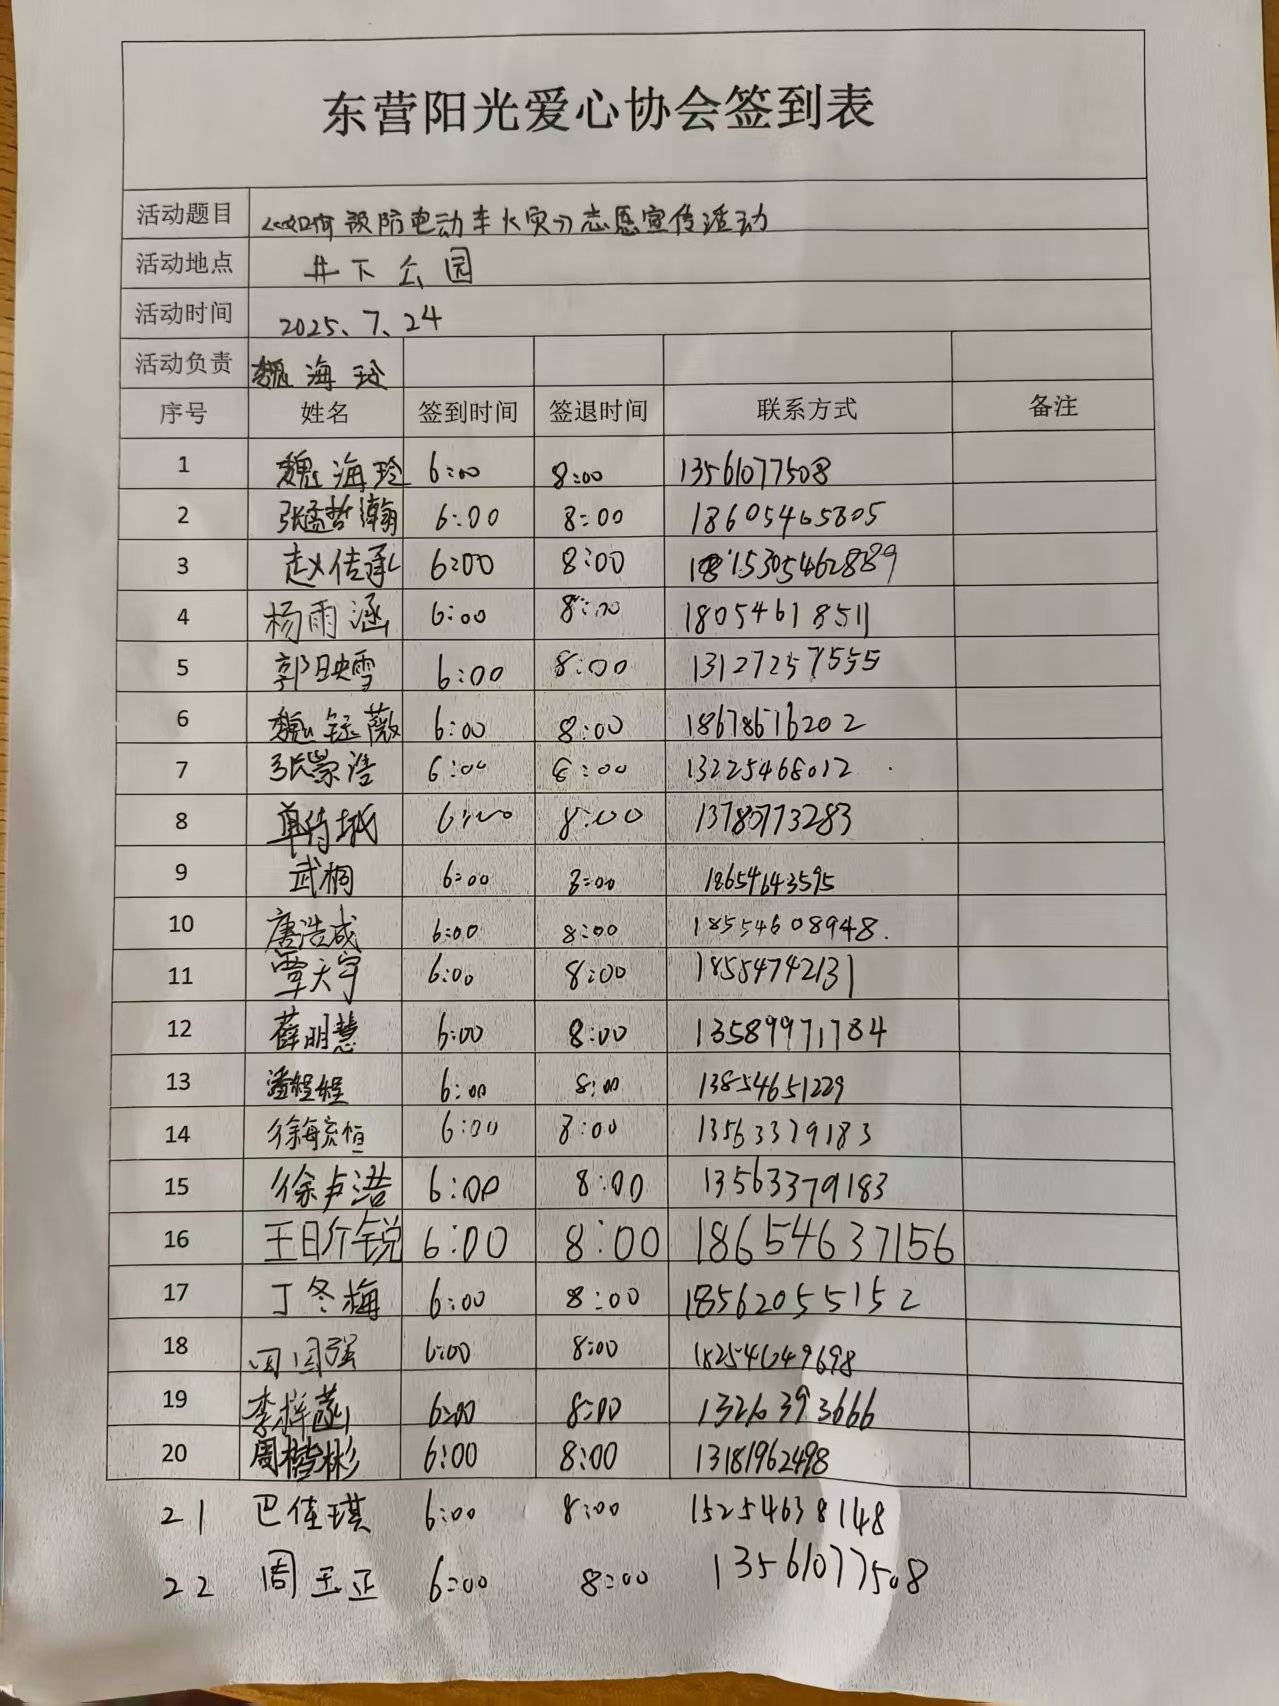 东营阳光爱心协会签到表
活动题目 《如何预防电动车火灾》志愿宣传活动
活动地点 井下公园
活动时间 2025、7、24
活动负责 魏海玲
序号 姓名 签到时间 签退时间 联系方式 备注
1 魏海玲 6:00 8:00 13561077508
2 张孟哲瀚 6:00 8:00 18605465805
3 赵传承 6:00 8:00 15305462889
4 杨雨涵 6:00 8:00 18054618511
5 郭映雪 6:00 8:00 13127257555
6 魏钰薇 6:00 8:00 18678676202
7 张景浩 6:00 8:00 13225468012
8 单待城 6:00 8:00 13780773283
9 武桐 6:00 8:00 18654643595
10 唐浩成 6:00 8:00 18554608948
11 覃天宇 6:00 8:00 18554742131
12 薛明慧 6:00 8:00 13589971784
13 潘程程 6:00 8:00 13854651229
14 徐海宽恒 6:00 8:00 13563379183
15 徐卢浩 6:00 8:00 13563379183
16 王日介锐 6:00 8:00 18654637156
17 丁冬梅 6:00 8:00 18562055152
18 闫国强 6:00 8:00 18254649698
19 李梓菡 6:00 8:00 13263393666
20 周楷彬 6:00 8:00 13181962498
21 巴佳琪 6:00 8:00 15254638148
22 周玉正 6:00 8:00 13561077508